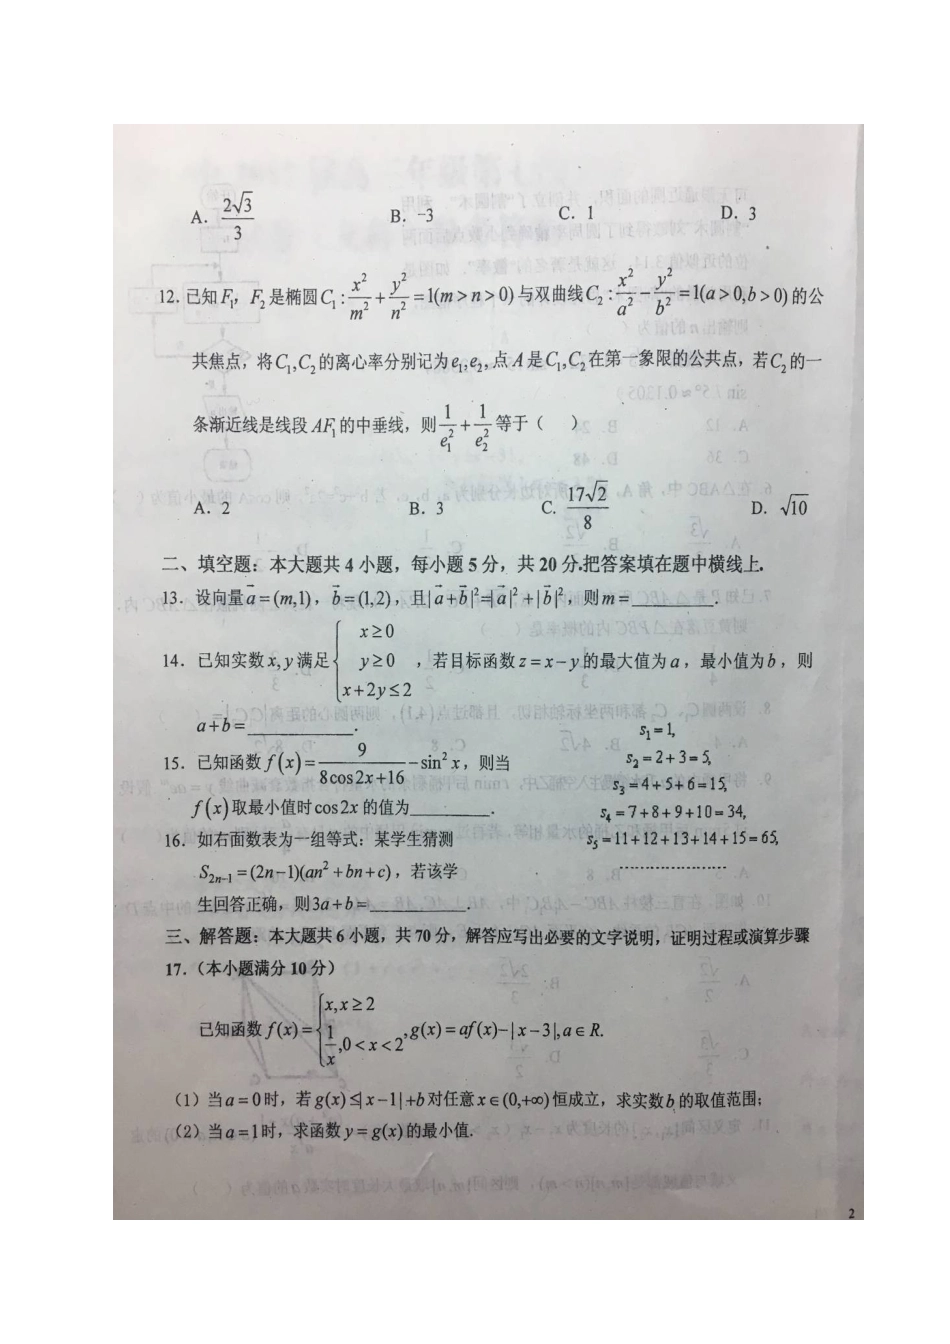 A. 2√3/3 B. -3 C. 1 D. 3
12. 已知F₁, F₂是椭圆C₁: x²/m² + y²/n² = 1(m>n>0)与双曲线C₂: x²/a² - y²/b² = 1(a>0,b>0)的公
共焦点，将C₁,C₂的离心率分别记为e₁,e₂, 点A是C₁,C₂在第一象限的公共点，若C₂的一
条渐近线是线段AF₁的中垂线，则 1/e₁² + 1/e₂² 等于（ ）
A. 2 B. 3 C. 17√2/8 D. √10
二、填空题：本大题共4小题，每小题5分，共20分.把答案填在题中横线上.
13. 设向量a⃗=(m,1)，b⃗=(1,2)，且|a⃗+b⃗|²=|a⃗|²+|b⃗|²，则m=________.
14. 已知实数x,y满足{x≥0, y≥0, x+2y≤2，若目标函数z=x-y的最大值为a，最小值为b，则
a+b=__________.
15. 已知函数f(x)= 9/(8cos2x+16) - sin²x，则当
f(x)取最小值时cos2x的值为________.
16. 如右面数表为一组等式：某学生猜测
S₂ₙ₋₁=(2n-1)(an²+bn+c)，若该学
生回答正确，则3a+b=__________.
s₁=1,
s₂=2+3=5,
s₃=4+5+6=15,
s₄=7+8+9+10=34,
s₅=11+12+13+14+15=65,
……………………
三、解答题：本大题共6小题，共70分，解答应写出必要的文字说明，证明过程或演算步骤
17.（本小题满分10分）
已知函数f(x)={x,x≥2; 1/x,0<x<2, g(x)=af(x)-|x-3|,a∈R.
（1）当a=0时，若g(x)≤|x-1|+b对任意x∈(0,+∞)恒成立，求实数b的取值范围；
（2）当a=1时，求函数y=g(x)的最小值.
2